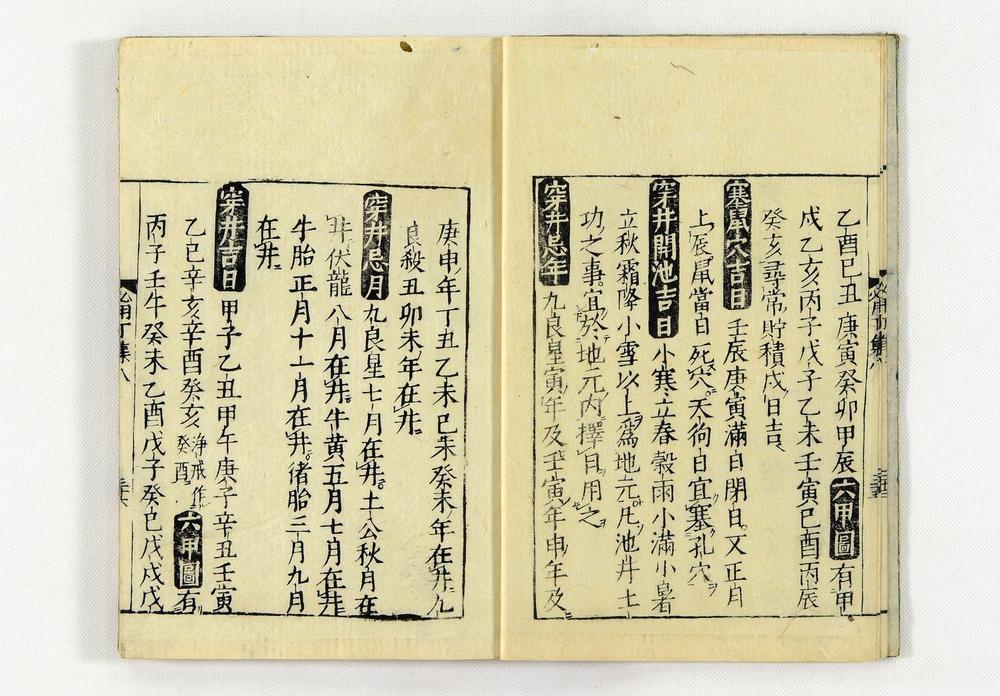 乙酉己丑庚寅癸卯甲辰六甲圖有甲
戌乙亥丙子戊子乙未壬寅己酉丙辰
癸亥尋常貯積成日吉
塞鼠穴吉日壬辰庚寅滿日閉日又正月
上辰鼠當日死穴天狗日宜塞孔穴
穿井開池吉日小寒立春穀雨小滿小暑
立秋霜降小雪以上爲地元凡池井土
功之事宜於地元內擇日用之
穿井忌年九良星寅年及壬寅年申年及
庚申年丁丑乙未己未癸未年在井九
良殺丑卯未年在井
穿井忌月九良星七月在井土公秋月在
井伏龍八月在井牛黄五月七月在井
牛胎正月十一月在井猪胎三月九月
在井
穿井吉日甲子乙丑甲午庚子辛丑壬寅
乙巳辛亥辛酉癸亥淨戒作癸酉六甲圖有
丙子壬午癸未乙酉戊子癸巳戊戌戊